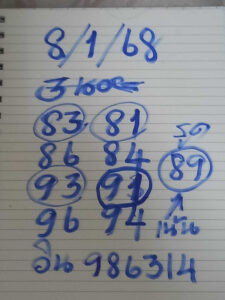 8/1/68
83 81
รูด
86 84
89
93 91
96 94
เน้น
วิน 986314